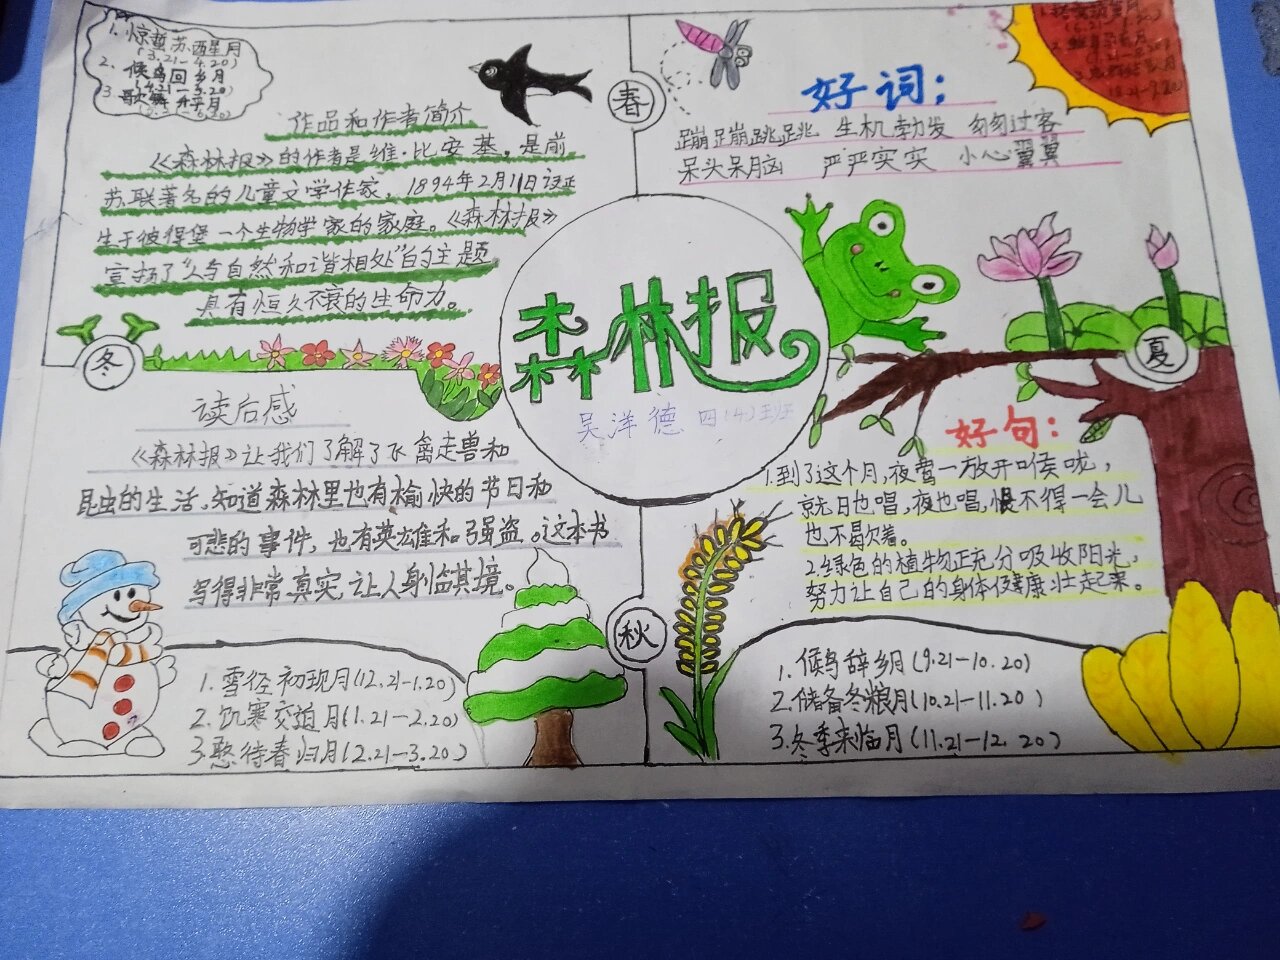 1. 惊蛰苏醒月
(3.21-4.20)
2. 候鸟回乡月
(4.21-5.20)
3.
作品和作者简介
《森林报》的作者是维·比安基,是前
苏联著名的儿童文学作家,1894年2月11日
生于彼得堡一个生物学家的家庭。《森林报》
宣扬了“人与自然和谐相处”的主题
具有恒久不衰的生命力。
春
好词:
蹦蹦跳跳 生机勃发 匆匆过客
呆头呆脑 严严实实 小心翼翼
森林报
吴洋德 四(4)班
冬
夏
读后感
《森林报》让我们了解了飞禽走兽和
昆虫的生活,知道森林里也有愉快的节日和
可悲的事件,也有英雄和强盗。这本书
写得非常真实,让人身临其境。
好句:
1.到了这个月,夜莺一放开喉咙,
就日也唱,夜也唱,恨不得一会儿
也不曷欠着。
2.绿色的植物正充分吸收阳光,
努力让自己的身体健康壮起来。
秋
1. 雪径初现月(12.21-1.20)
2. 饥寒交迫月(1.21-2.20)
3. 憨待春归月(2.21-3.20)
1. 候鸟辞乡月(9.21-10.20)
2. 储备冬粮月(10.21-11.20)
3. 冬季来临月(11.21-12.20)